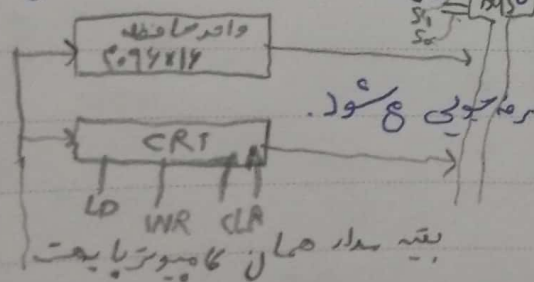 واحد حافظه
۴۰۹۶×۱۶
S₁
S₀
می شود.
CRT
LD WR CLR
بقیه مدار همان کامپیوتر پایه است